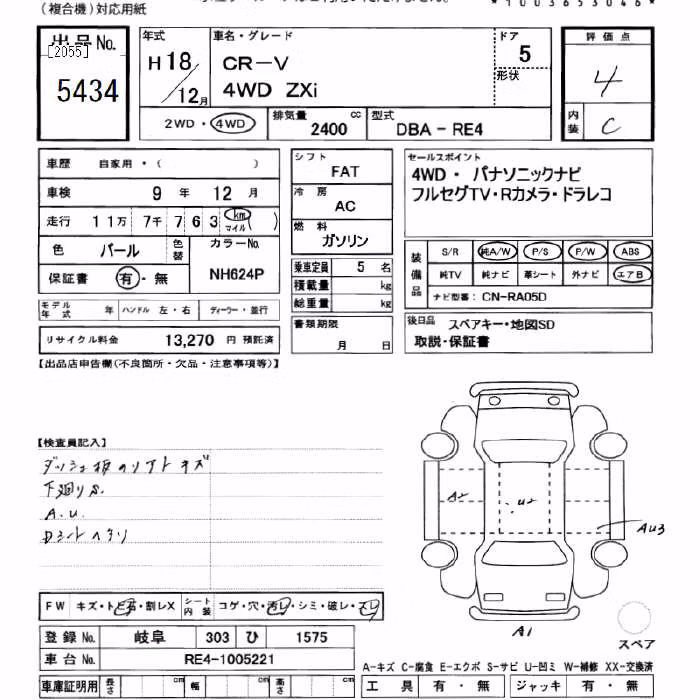 (複合機)対応用紙
*1003653046*
出品No.
[2055]
5434
年式
H18/12月
車名・グレード
CR-V
4WD ZXi
ドア
5
形状
評価点
4
内装
C
2WD・4WD
排気量
2400 cc
型式
DBA-RE4
車歴 自家用・( )
車検 9年 12月
走行 11万 7千 763 km マイル ( )
色 パール 色替
カラーNo.
NH624P
保証書 有・無
モデル年式 年 ハンドル 左・右 ディーラー・並行
リサイクル料金 13,270円 預託済
シフト
FAT
冷房
AC
燃料
ガソリン
乗車定員 5名
積載量 kg
総重量 kg
書類期限
月 日
セールスポイント
4WD・ パナソニックナビ
フルセグTV・Rカメラ・ドラレコ
装備品
S/R 純A/W P/S P/W ABS
純TV 純ナビ 革シート 外ナビ エアB
ナビ型番: CN-RA05D
後日品 スペアキー・地図SD
取説・保証書
【出品店申告欄(不良箇所・欠品・注意事項等)】
【検査員記入】
下廻りS.
A.U.
A2
U2
AU3
A1
スペア
FW キズ・トビ石・割レX
シート内装 コゲ・穴・汚レ・シミ・破レ・スレ
登録No. 岐阜 303 ひ 1575
車台No. RE4-1005221
車庫証明用 長さ cm 幅 cm 高さ cm
A-キズ C-腐食 E-エクボ S-サビ U-凹ミ W-補修 XX-交換済
工具 有・無 ジャッキ 有・無